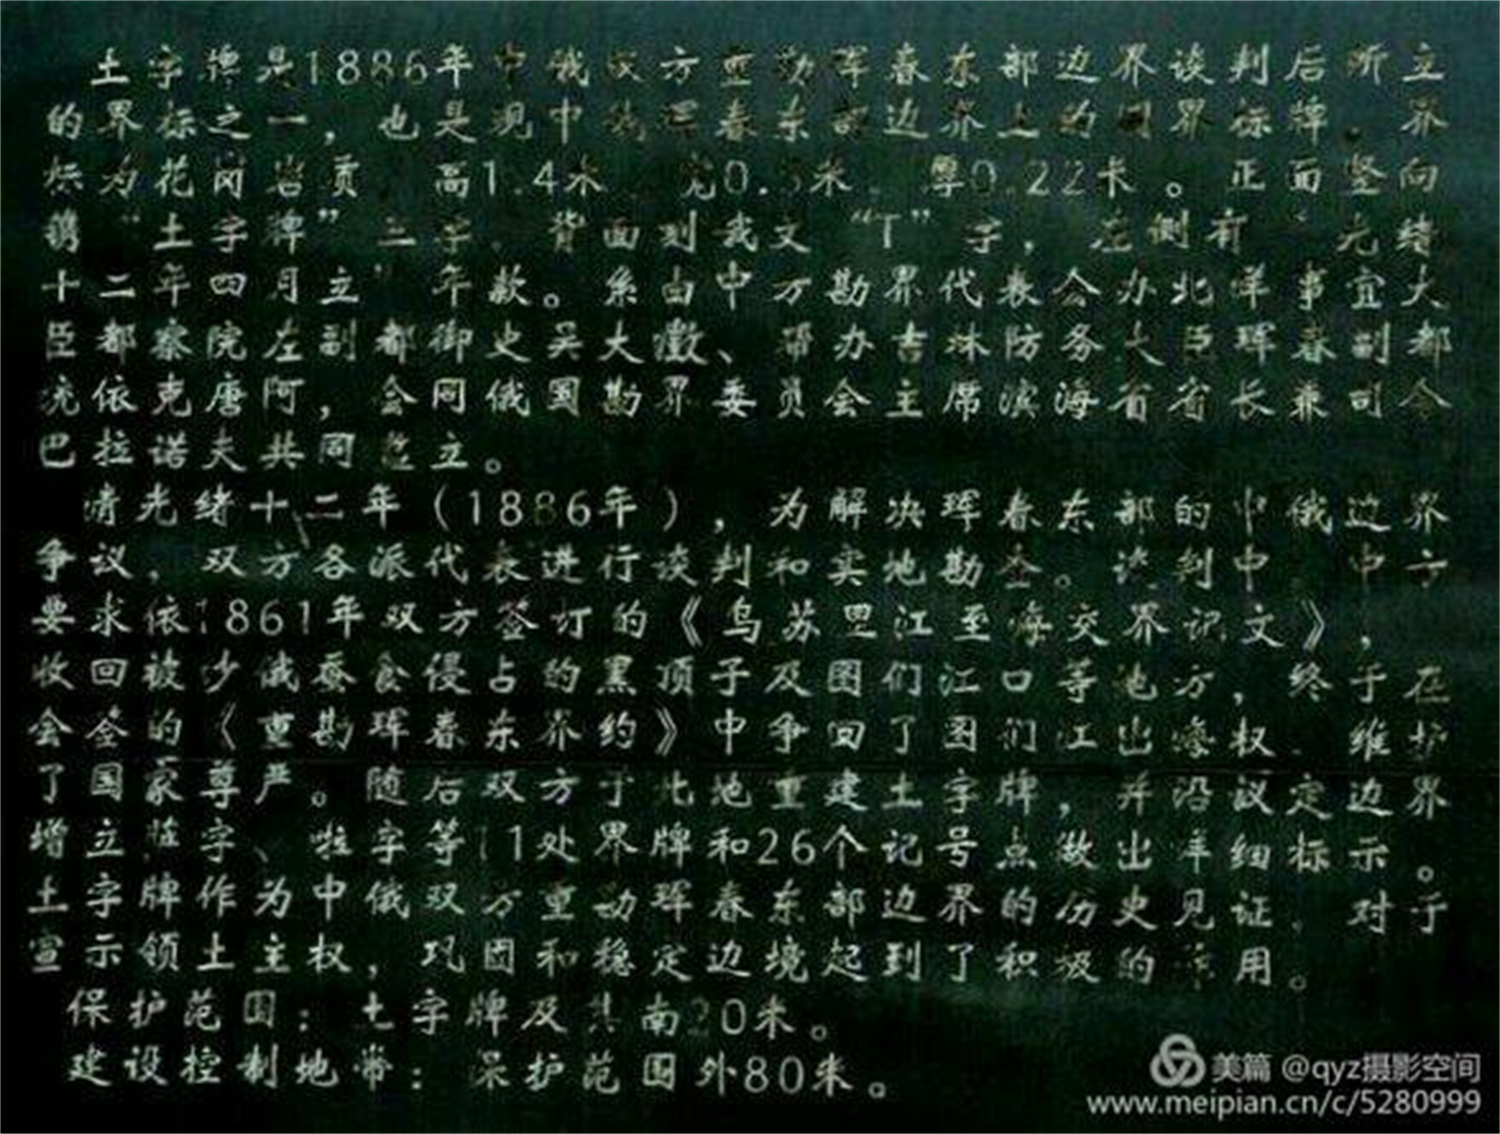 土字牌是1886年中俄双方重勘珲春东部边界谈判后所立
的界标之一，也是现中俄珲春东部边界上的国界标牌。界
标为花岗岩质 高1.4米 宽0.5米 厚0.22米。正面竖向
镌“土字牌”三字 背面刻俄文“T”字，左侧有“光绪
十二年四月立”年款。系由中方勘界代表会办北洋事宜大
臣都察院左副都御史吴大澂、帮办吉林防务大臣珲春副都
统依克唐阿，会同俄国勘界委员会主席滨海省省长兼司令
巴拉诺夫共同竖立。
清光绪十二年（1886年），为解决珲春东部的中俄边界
争议，双方各派代表进行谈判和实地勘查。谈判中 中方
要求依1861年双方签订的《乌苏里江至海交界记文》，
收回被沙俄蚕食侵占的黑顶子及图们江口等地方，终于在
会签的《重勘珲春东界约》中争回了图们江出海权 维护
了国家尊严。随后双方于此地重建土字牌，并沿议定边界
增立萨字、啦字等11处界牌和26个记号点做出详细标示。
土字牌作为中俄双方重勘珲春东部边界的历史见证，对于
宣示领土主权，巩固和稳定边境起到了积极的作用。
保护范围：土字牌及其南20米。
建设控制地带：保护范围外80米。
美篇 @qyz摄影空间
www.meipian.cn/c/5280999